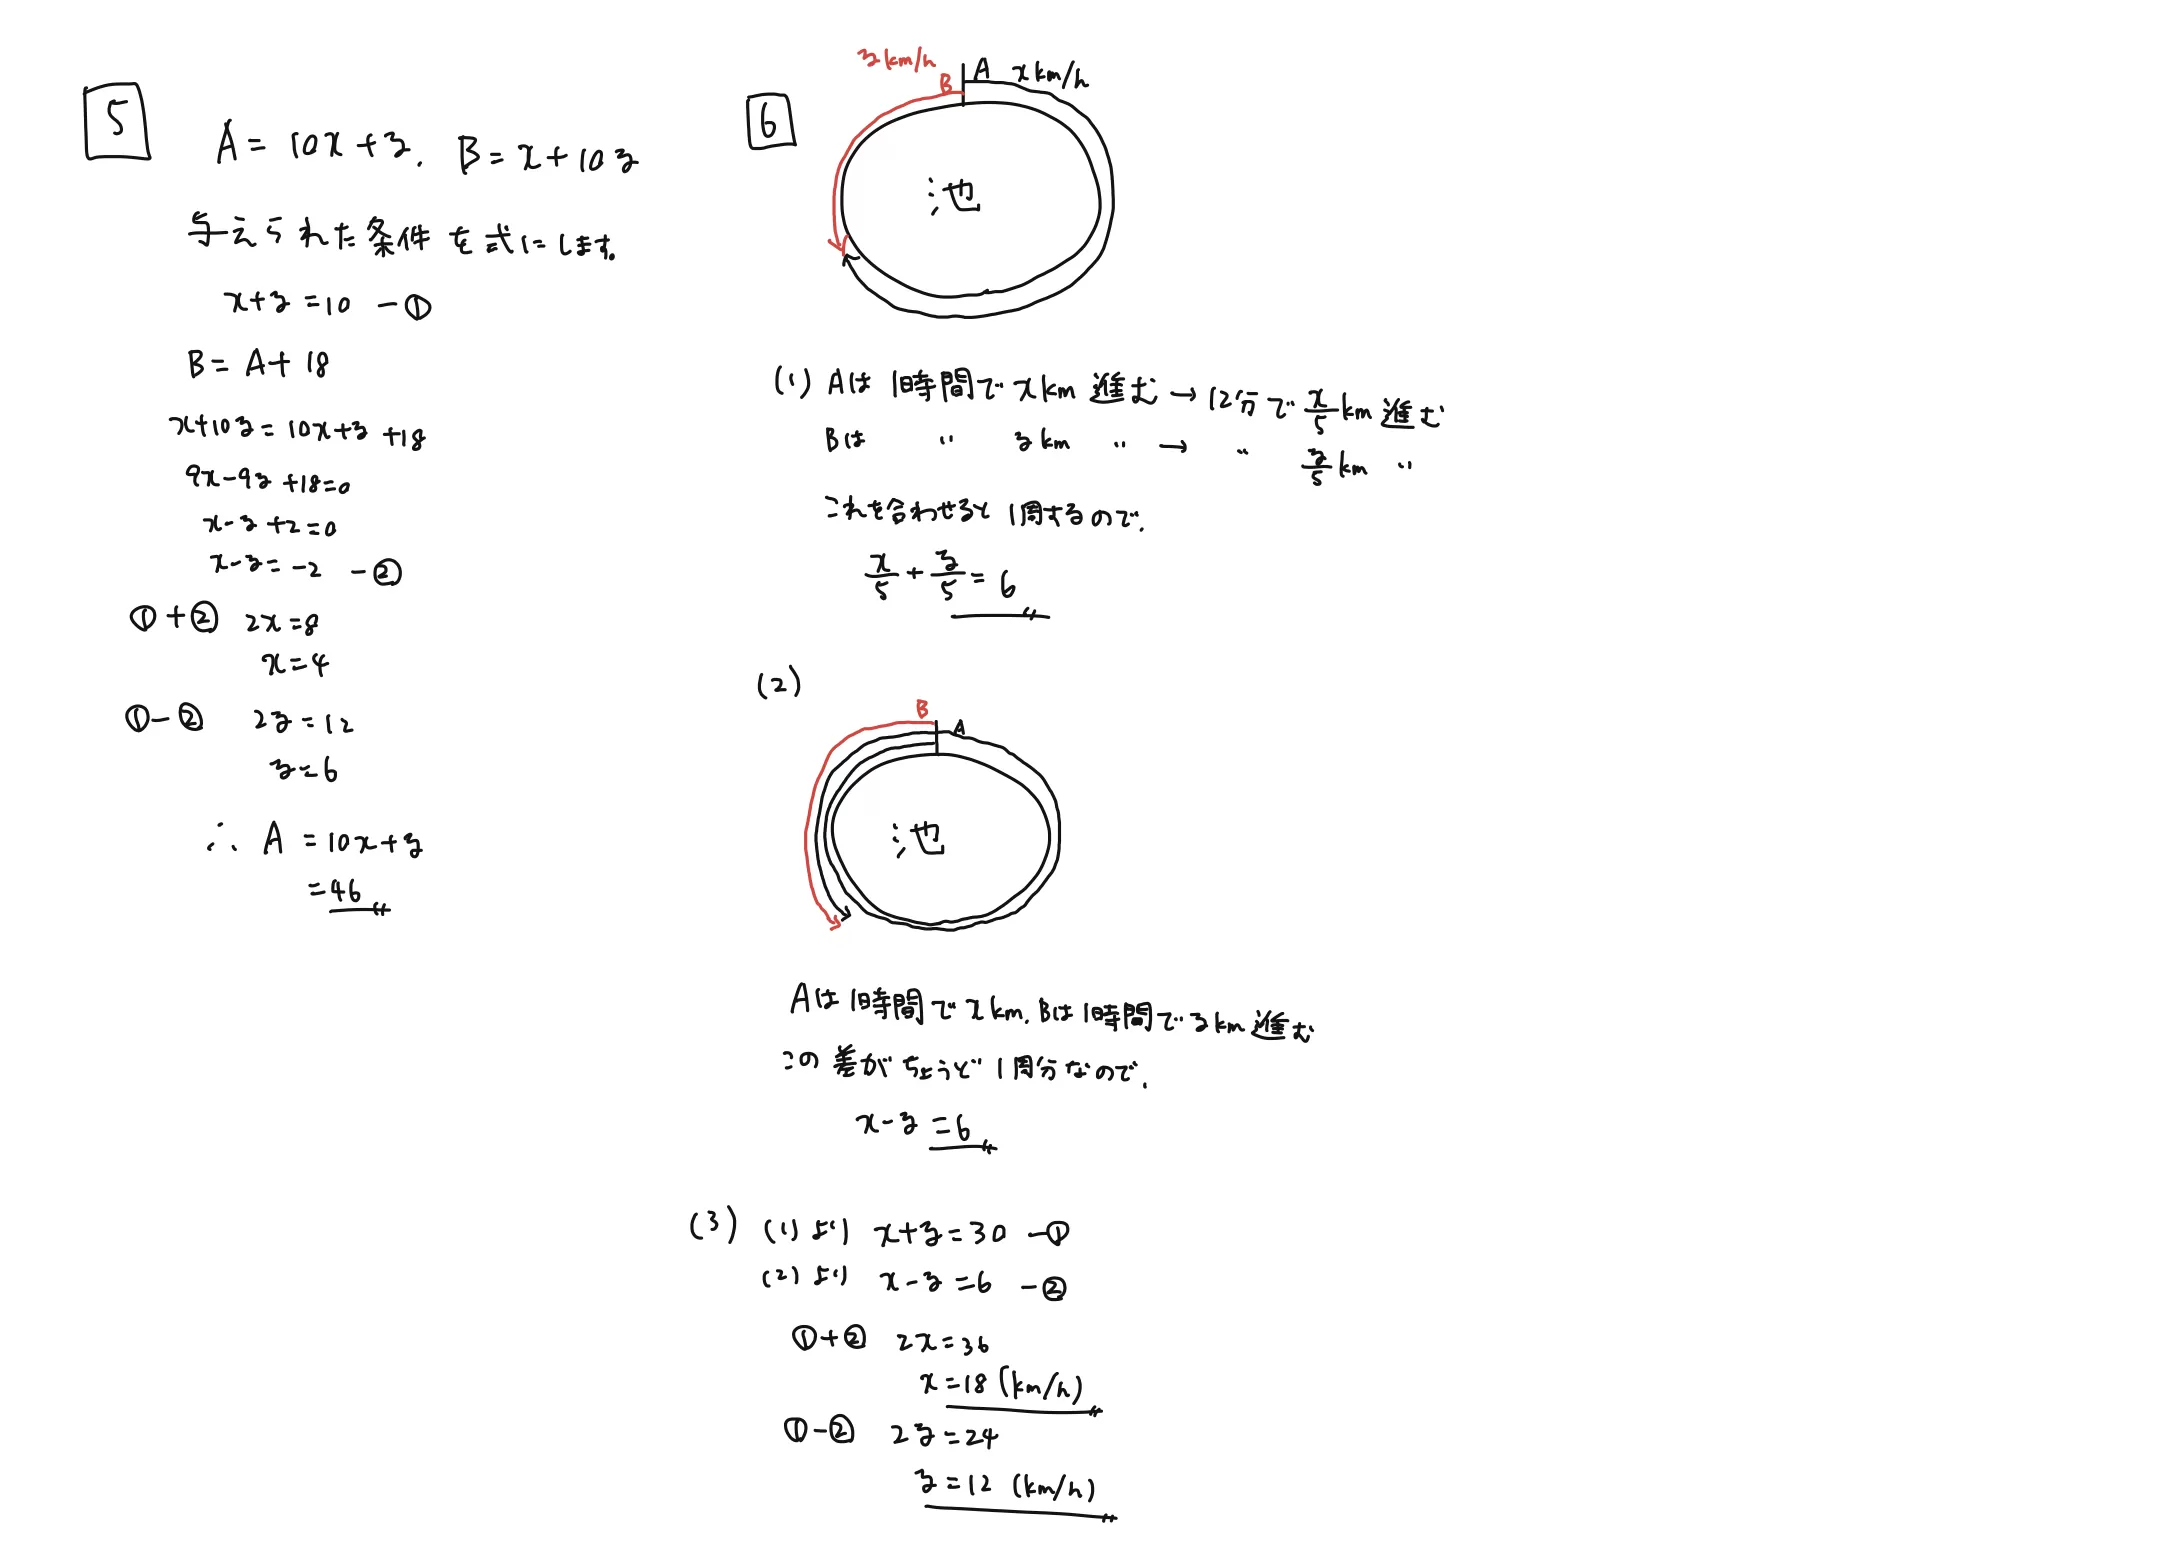 5
A = 10x + y, B = x + 10y
与えられた条件を式にします。
x + y = 10 - ①
B = A + 18
x + 10y = 10x + y + 18
9x - 9y + 18 = 0
x - y + 2 = 0
x - y = -2 - ②
① + ② 2x = 8
x = 4
① - ② 2y = 12
y = 6
∴ A = 10x + y
= 46
6
y km/h
B
A x km/h
池
(1) Aは 1時間で x km 進む → 12分で x/5 km 進む
Bは 〃 y km 〃 → 〃 y/5 km 〃
これを合わせると1周するので,
x/5 + y/5 = 6
(2)
B
A
池
Aは1時間でx km, Bは1時間でy km進む
この差がちょうど1周分なので,
x - y = 6
(3) (1)より x + y = 30 - ①
(2)より x - y = 6 - ②
① + ② 2x = 36
x = 18 (km/h)
① - ② 2y = 24
y = 12 (km/h)